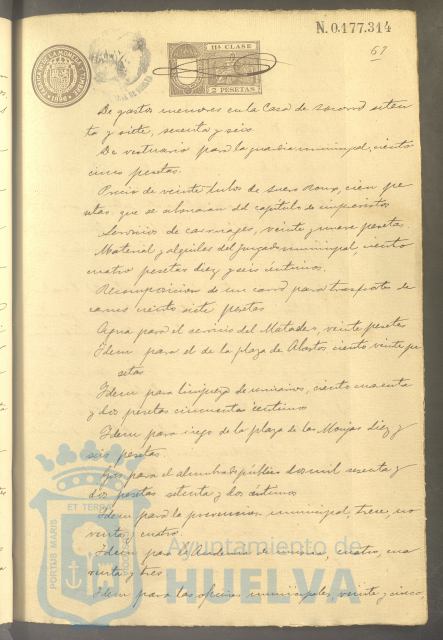 N. 0.177.314
67
11ª CLASE
2 PESETAS
De gastos menores en la Casa de socorro seten
ta y siete, sesenta y seis
De vestuario para la guardia municipal, ciento
cinco pesetas.
Precio de veinte tubos de suero Roux, cien pe
setas, que se abonaran del capitulo de imprevistos
Servicios de carruajes, veinte y nueve pesetas.
Material y alquiler del Juzgado municipal, ciento
cuatro pesetas diez y seis céntimos.
Recomposicion de un carro para trasporte de
carnes ciento siete pesetas
Agua para el servicio del Matadero, veinte pesetas
Idem para el de la plaza de Abastos ciento veinte pe
setas
Idem para limpieza de urinarios, ciento cuarenta
y dos pesetas cincuenta centimos
Idem para riego de la plaza de las Monjas diez y
seis pesetas.
Gas para el alumbrado público dos mil sesenta y
dos pesetas setenta y dos céntimos
Idem para la prevencion municipal, trece, no
venta y cuatro
Idem para la Academia de musica, cuatro, cua
renta y tres
Idem para las oficinas municipales, veinte y cinco,
PORTUS MARIS
ET TERRÆ
Ayuntamiento de
HUELVA